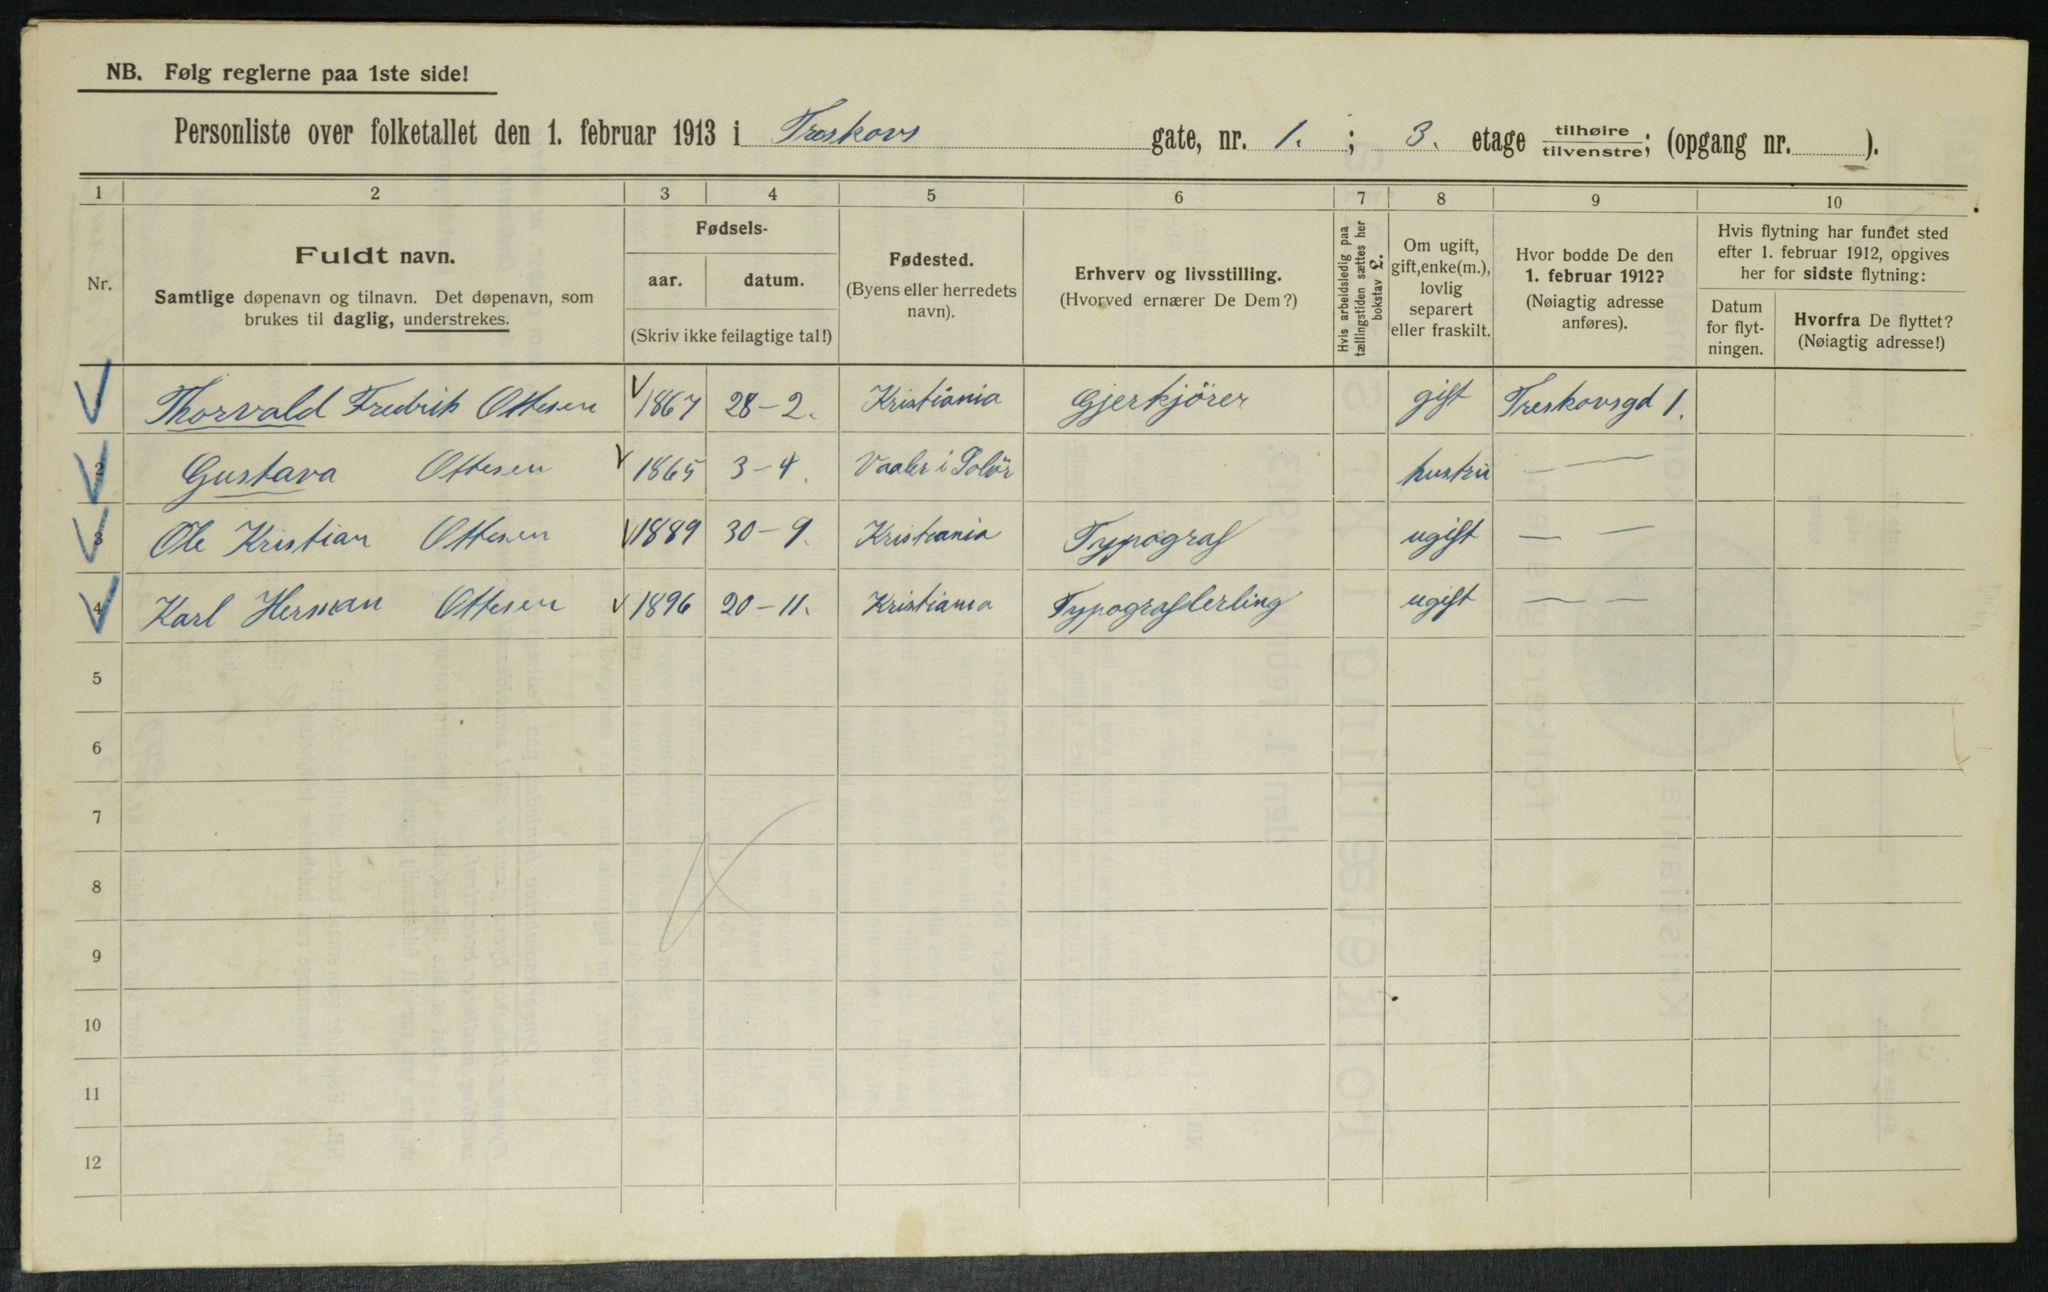 NB. Følg reglerne paa 1ste side!
Personliste over folketallet den 1. februar 1913 i Treskovs gate, nr. 1. ; 3. etage tilhøire / tilvenstre; (opgang nr. ).
1 2 3 4 5 6 7 8 9 10
Nr.
Fuldt navn.
Samtlige døpenavn og tilnavn. Det døpenavn, som
brukes til daglig, understrekes.
Fødsels-
aar. datum.
(Skriv ikke feilagtige tal!)
Fødested.
(Byens eller herredets
navn).
Erhverv og livsstilling.
(Hvorved ernærer De Dem?)
Hvis arbeidsledig paa
tællingstiden sættes her
bokstav L.
Om ugift,
gift, enke(m.),
lovlig
separert
eller fraskilt.
Hvor bodde De den
1. februar 1912?
(Nøiagtig adresse
anføres).
Hvis flytning har fundet sted
efter 1. februar 1912, opgives
her for sidste flytning:
Datum
for flyt-
ningen.
Hvorfra De flyttet?
(Nøiagtig adresse!)
Thorvald Fredrik Ottesen 1867 28-2. Kristiania Gjerkjörer gift Treskovsgd 1.
2 Gustava Ottesen 1865 3-4. Vaaler i Solör hustru — —
3 Ole Kristian Ottesen 1889 30-9. Kristiania Typograf ugift — —
4 Karl Herman Ottesen 1896 20-11. Kristiania Typograflerling ugift — —
5
6
7
8
9
10
11
12